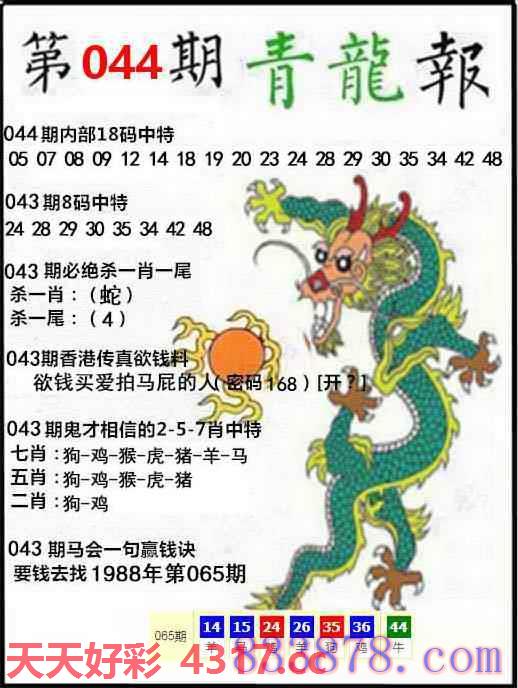 第044期 青龍報
044期内部18码中特
05 07 08 09 12 14 18 19 20 23 24 28 29 30 35 34 42 48
043期8码中特
24 28 29 30 35 34 42 48
043期必绝杀一肖一尾
杀一肖:(蛇)
杀一尾:(4)
043期香港传真欲钱料
欲钱买爱拍马屁的人(密码168)[开?]
043期鬼才相信的2-5-7肖中特
七肖:狗-鸡-猴-虎-猪-羊-马
五肖:狗-鸡-猴-虎-猪
二肖:狗-鸡
043期马会一句赢钱诀
要钱去找1988年第065期
065期 14 15 24 26 35 36 44
羊 鸡 牛
天天好彩
878.com